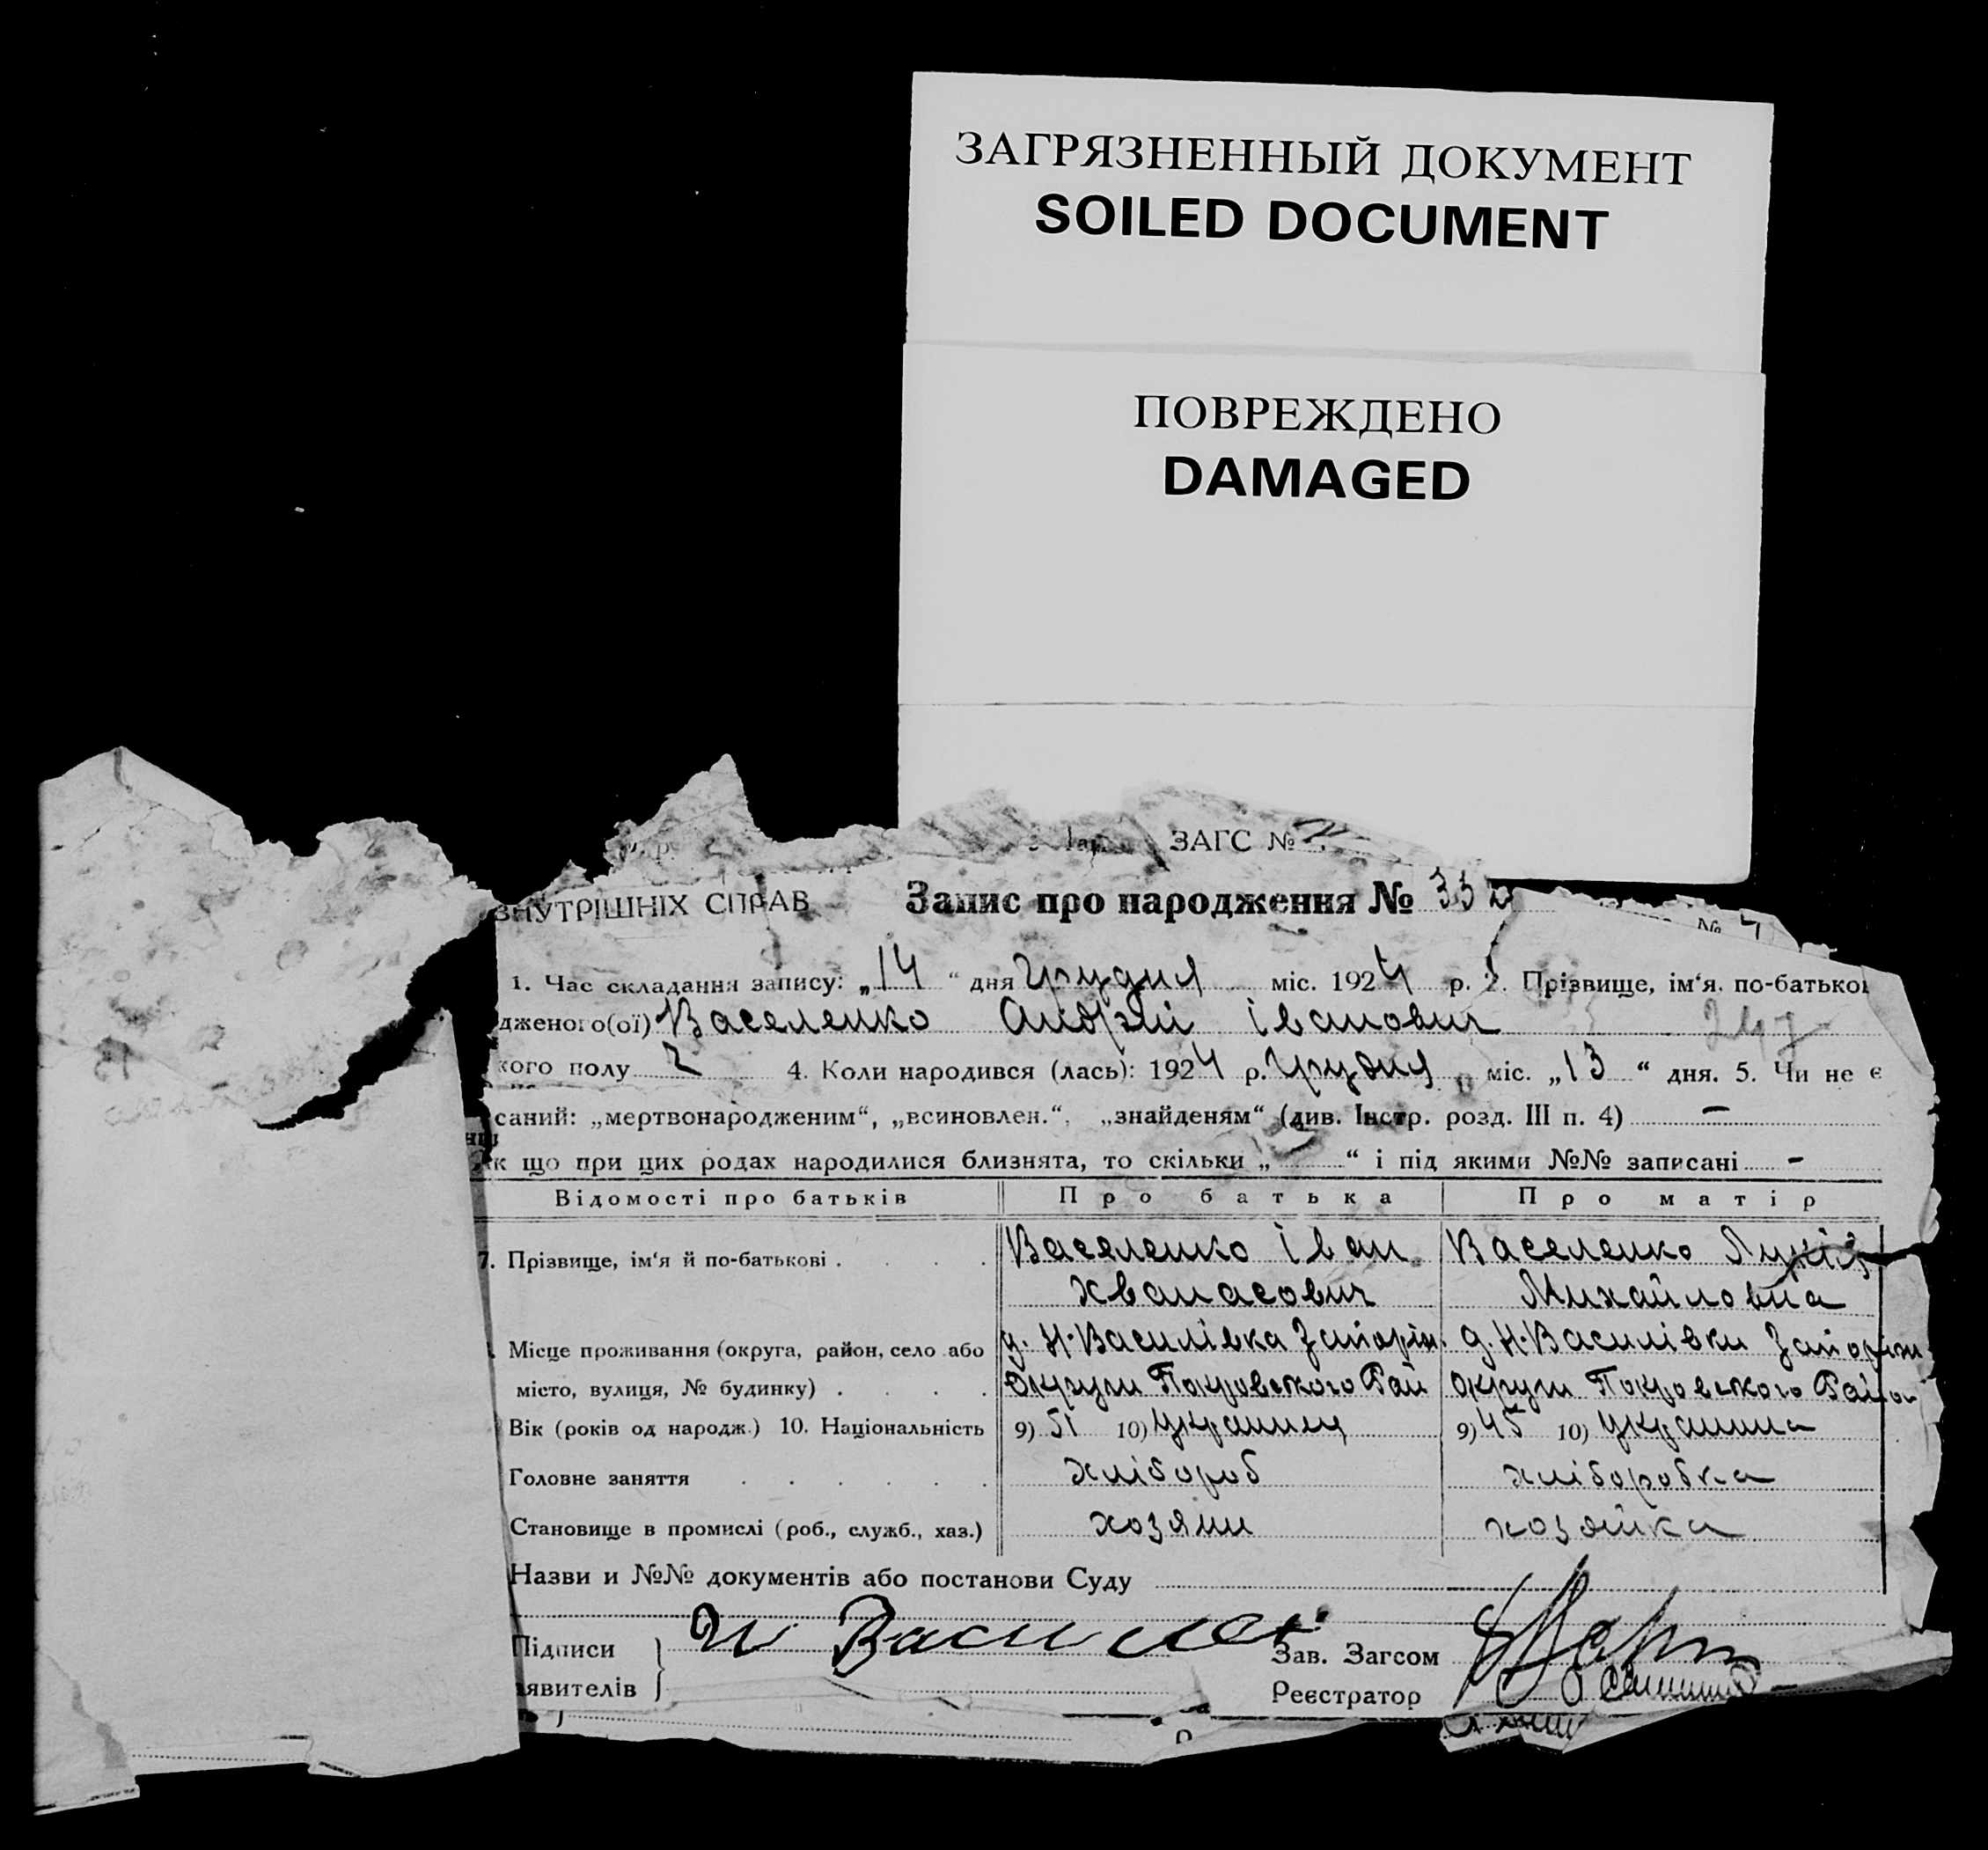 ЗАГРЯЗНЕННЫЙ ДОКУМЕНТ
SOILED DOCUMENT
ПОВРЕЖДЕНО
DAMAGED
ЗАГС №
ВНУТРІШНІХ СПРАВ Запис про народження № 332
№ 4
1. Час складання запису: „14“ дня Грудня міс. 1924 р. 2. Прізвище, ім'я. по-батькові
дженого(ої) Василенко Андрэй іванович 247
кого полу 2 4. Коли народився (лась): 1924 р. Грудня міс. „13“ дня. 5. Чи не є
саний: „мертвонародженим“, „всиновлен.“, „знайденям“ (див. Інстр. розд. III п. 4) –
к що при цих родах народилися близнята, то скільки „ “ і під якими №№ записані –
Відомості про батьків Про батька Про матір
7. Прізвище, ім'я й по-батькові . . . . Василенко іван Василенко Лукія
Хванасович Михайловна
Місце проживання (округа, район, село або д. Н-Василівка Запоріж. д. Н-Василівки Запоріж
місто, вулиця, № будинку) . . . . Округи Покровського Рай Округи Покровського Райо
Вік (років од народж.) 10. Національність 9) 51 10) Украинец 9) 45 10) Украинка
Головне заняття . . . . . . хлібороб хліборобка
Становище в промислі (роб., служб., хаз.) хозяин хозяйка
Назви и №№ документів або постанови Суду
Підписи И Василе
Зав. Загсом
явителів
Реєстратор